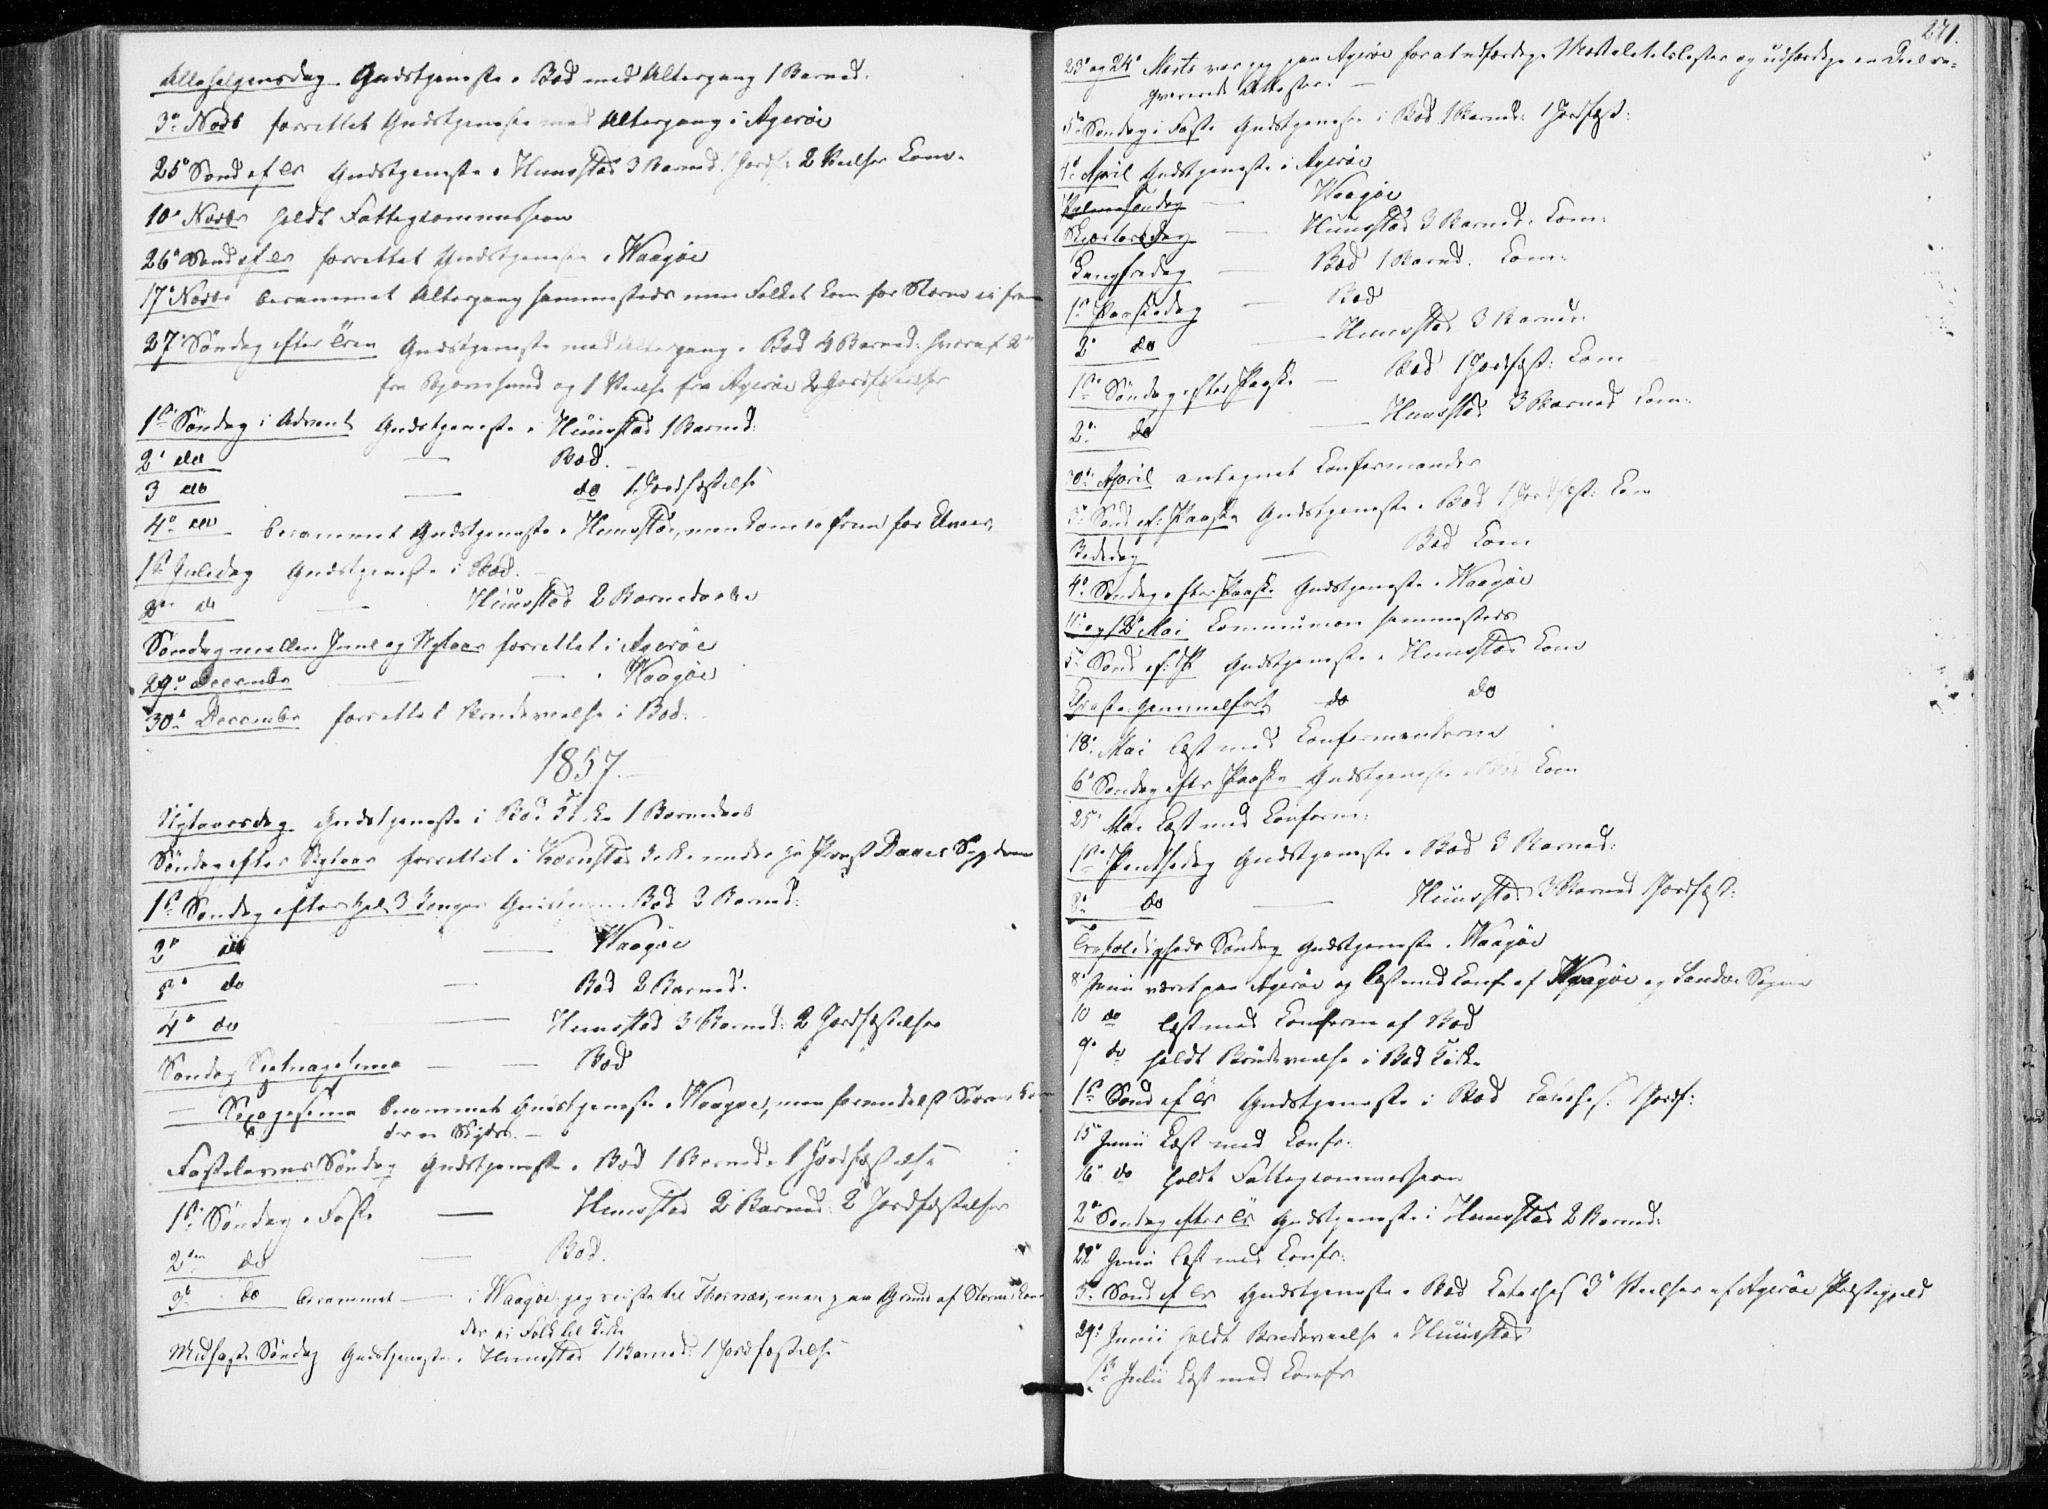 Allehelgensdag Gudstjeneste i Bod med Altergang 1 Barned.
3die Novb forrettet Gudstjeneste med Altergang i Agerøe
25de Sønd ef Tr Gudstjeneste i Huustad 3 Barned. 1 Jordf: 2 Vielser Com.
10de Novbr holdt Fattigcommission
26de Sønd ef Tr forrettet Gudstjeneste i Waagøe
17de Novbr berammet Altergang sammesteds men Folket kom for Storm ei frem
27de Søndag efter Tren Gudstjeneste med Altergang i Bod 4 Barned: hvoraf 2
fra Bjørnsund og 1 Vielse fra Agerøe 2 Jordfæstelser
1ste Søndag i Advent Gudstjeneste i Huustad 1 Barned:
2den do — Bod.
3 do — do 1 Jordfæstelse
4de do berammet Gudstjeneste i Huustad, men kom ei frem for Uveir.
1ste Juledag Gudstjeneste i Bod.
2den do — Huustad 2 Barnedaabe
Søndag mellem Juul og Nytaar forrettet i Agerøe
29de Decembr — Waagøe
30de Decembr forrettet Brudevielse i Bod.
1857.
Nytaarsdag Gudstjeneste i Bod Kirke 1 Barnedaab
Søndag efter Nytaar forrettet i Kornstad Kirke under Provst Daaes Sygdom
1ste Søndag efter Hel. 3 Konger Gudstjen. Bod 3 Barned:
2den do — Waagøe
3die do — Bod 2 Barned:
4de do — Huustad 3 Barned: 2 Jordfæstelser
Søndag Septuagesima — Bod
— Sexagesima berammet Gudstjeneste i Waagøe, men formedelst Storm kom
der ei Skyds. —
Fastelavns Søndag Gudstjeneste i Bod 1 Barned. 1 Jordfæstelse
1ste Søndag i Faste — Huustad 2 Barned: 2 Jordfæstelser
2den do — Bod.
3die do berammet — i Waagøe jeg reiste til Thornæs, men paa Grund af Storm kom
der ei Folk til Kirke
Midfaste Søndag Gudstjeneste i Huustad 1 Barned: 1 Jordfæstelse
271.
23de og 24de Marts var jeg paa Agerøe for at udfærdige og udfærdige en Deel re-
qvirerede Attester. —
5te Søndag i Faste Gudstjeneste i Bod 1 Barned: 1 Jordfæst:
4de April Gudstjeneste i Agerøe
Palmesøndag — Waagøe
Skjertorsdag — Huustad 3 Barned. Com:
Langfredag — Bod 1 Barned. Com:
1ste Paaskedag — Bod
2den do — Huustad 3 Barned:
1ste Søndag efter Paaske — Bod 1 Jordfæst: Com
2den do — Huustad 3 Barned Com.
30te April antegnet Confirmander
3die Sønd ef: Paaske Gudstjeneste i Bod 1 Jordfæst: Com
Bededag — Bod Com
4de Søndag efter Paaske Gudstjeneste i Waagøe
11te og 12te Mai Communion sammesteds
5te Sønd ef: P Gudstjeneste i Huustad Com
Christi Himmelfart do do
18de Mai læst med Confirmanderne
6te Søndag efter Paaske Gudstjeneste i Bod Com
25de Mai læst med Confirm:
1ste Pintsedag Gudstjeneste i Bod 3 Barned:
2den do — Huustad 3 Barned Jordfæst:
Trefoldigheds Søndag Gudstjeneste i Waagøe
8de Junii været paa Agerøe og læst med Conf. af Waagøe og Sandøe Sogne
10 do læst med Confirm af Bod
9de do holdt Brudevielse i Bod Kirke
1ste Sønd ef Tr Gudstjeneste i Bod Cateches. 1 Jordf:
15de Junii læst med Confr.
16de do holdt Fattigcommission
2den Søndag efter Tr Gudstjeneste i Huustad 2 Barned:
22de Junii læst med Confr.
3die Sønd ef Tr Gudstjeneste i Bod Cateches 3 Vielser af Agerøe Præstegjeld
29de Junii holdt Brudevielse i Huustad
1ste Julii læst med Confr